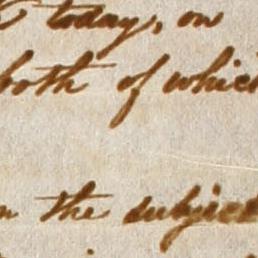 today, on
both of which
the subject